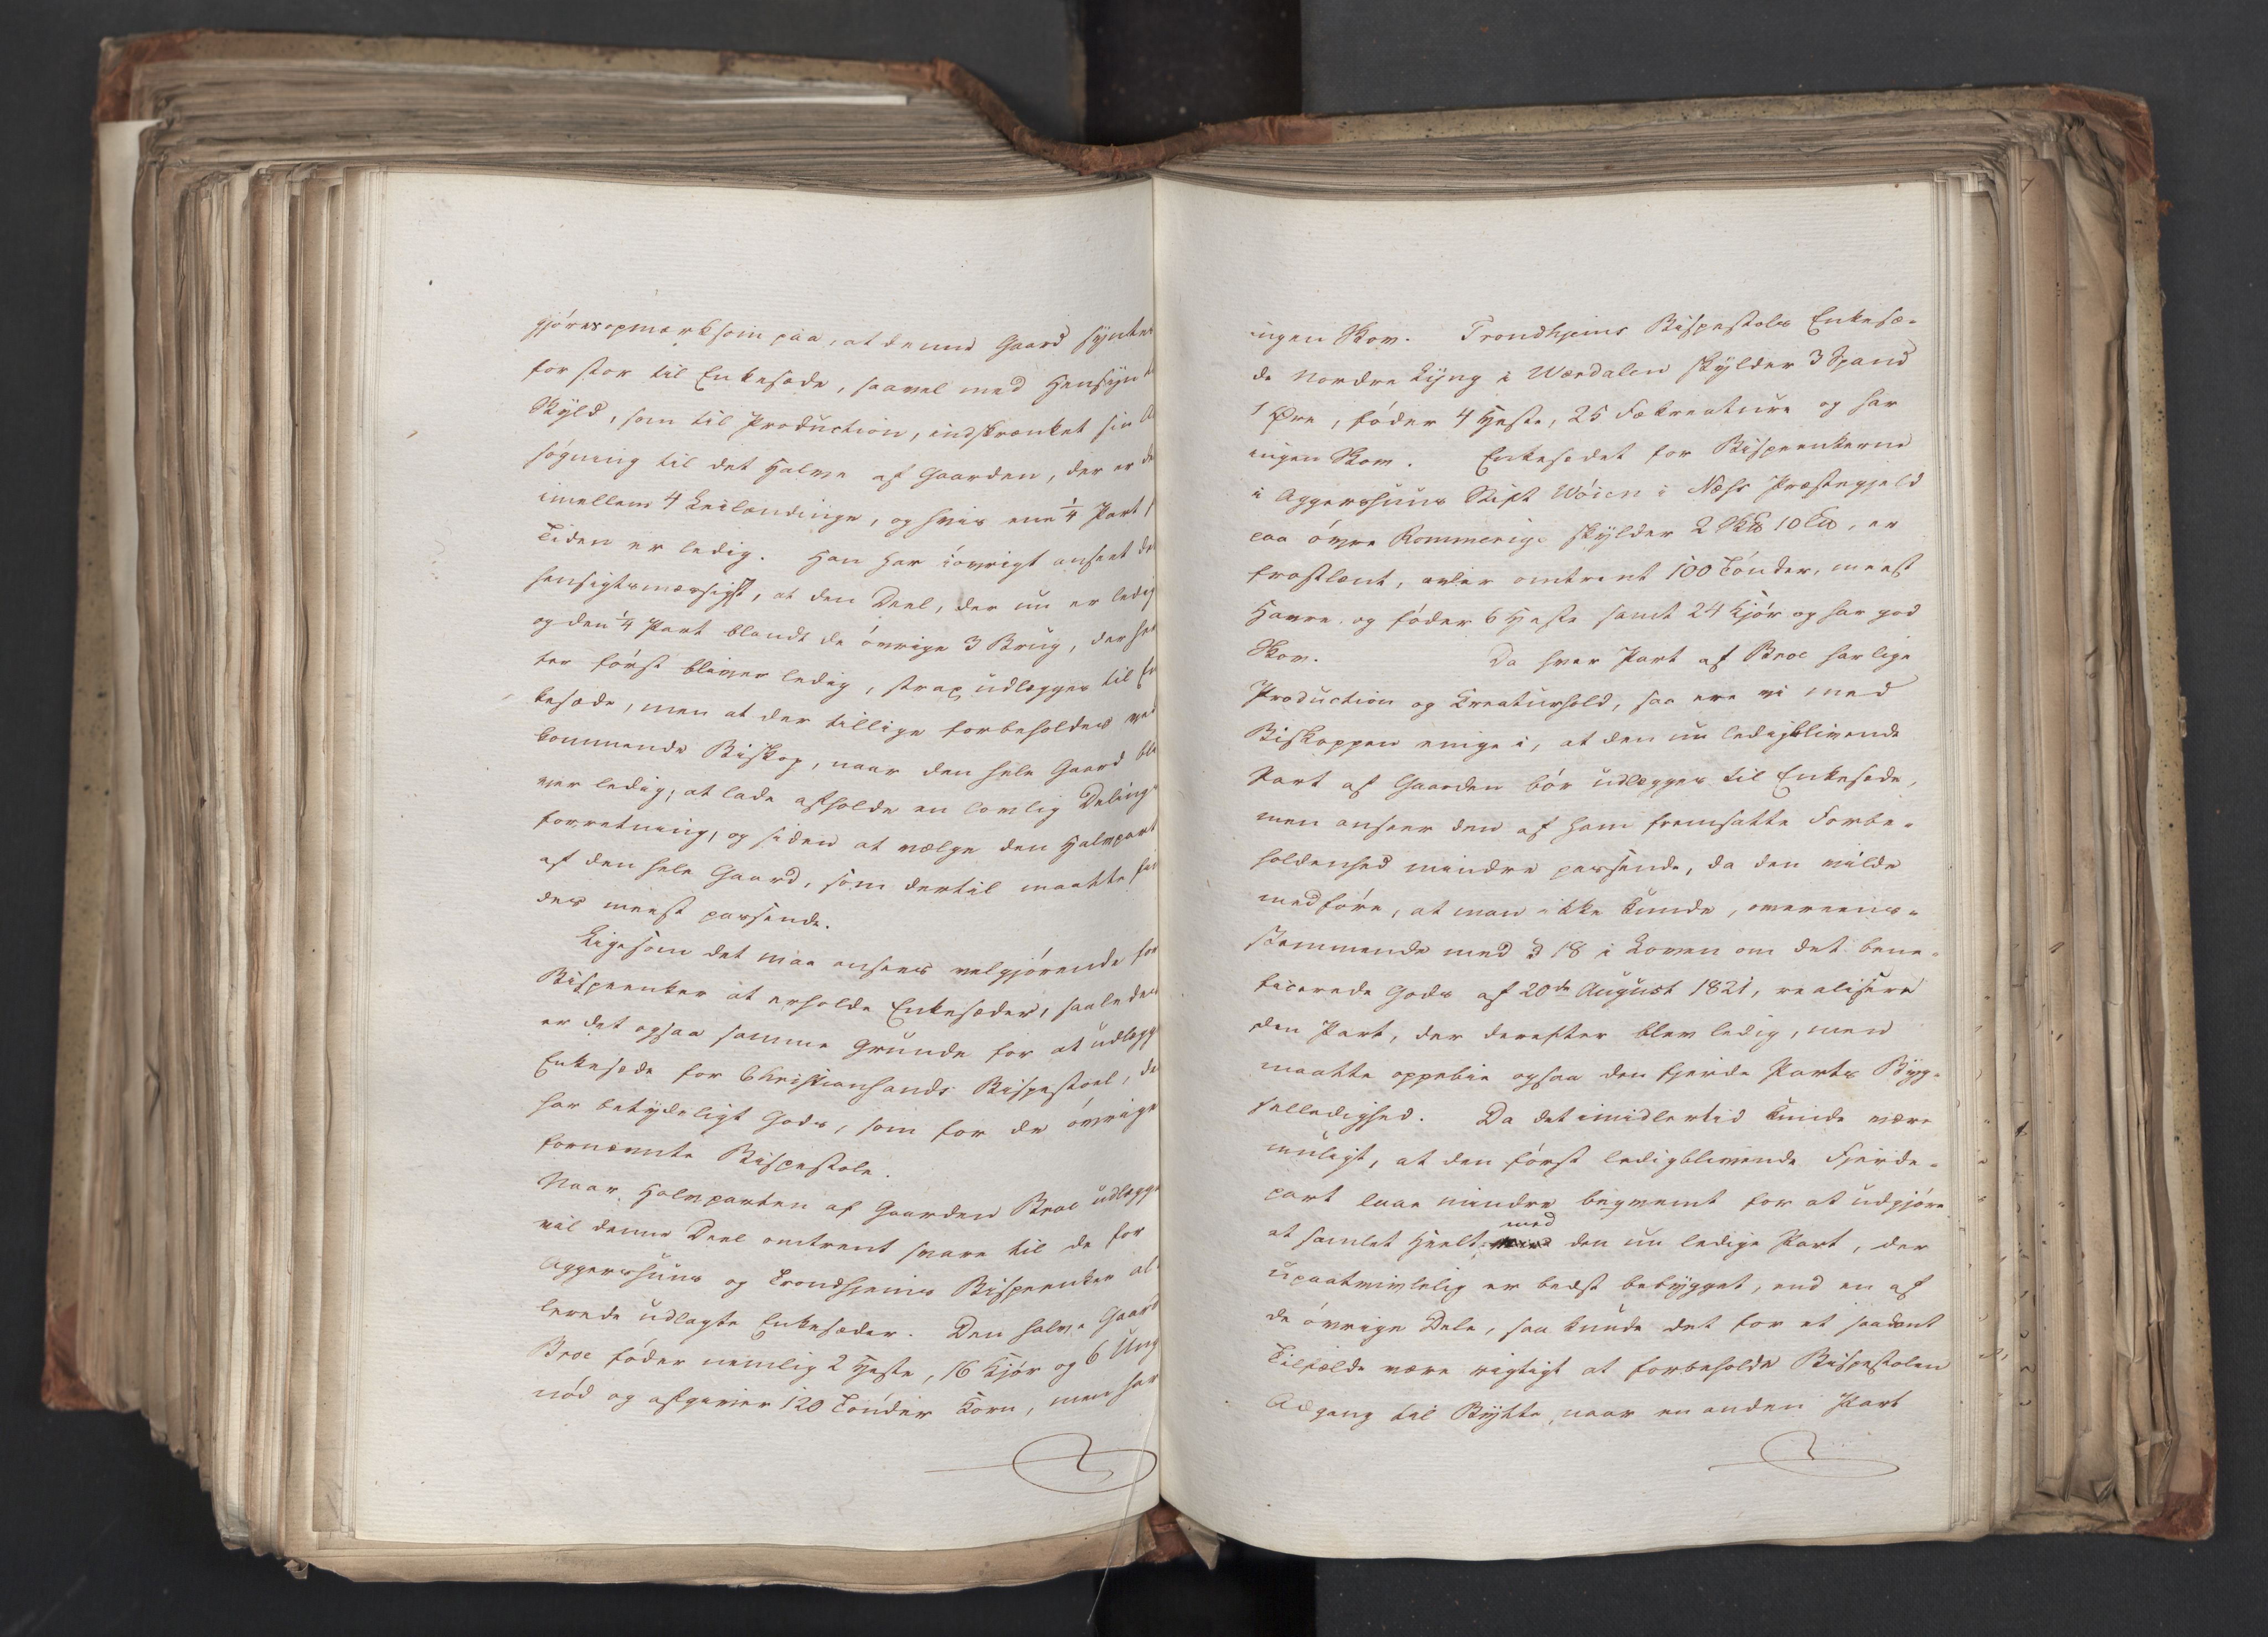 gjöres opmærksom paa, at denne Gaard syntes
for stor til Enkesæde, saavel med Hensyn t
Skyld, som til Production, indskrænket sin A
søgning til det Halve af Gaarden, der er de
imellem 4 Leilændinge, og hvis ene 1/4 Part f
Tiden er ledig. Han har iøvrigt anseet de
hensigtsmæssigst, at den Deel, der nu er ledig
og den 1/4 Part blandt de övrige 3 Brug, der her
ter først bliver ledig, strax udlægges til En
kesæde, men at der tillige forbeholdes ved
kommende Biskop, naar den hele Gaard bli
ver ledig, at lade afholde en lovlig Delings
forretning, og siden at vælge den Halvpart
af den hele Gaard, som dertil maatte fin
des meest passende.
Ligesom det maa ansees velgjörende for
Bispeenker at erholde Enkesæder, saaledes
er det ogsaa samme Grunde for at udlægge
Enkesæde for Christiansands Bispestoel, der
har betydeligt Gods, som for de övrige
fornævnte Bispestole.
Naar Halvparten af Gaarden Broe udlægge
vil denne Deel omtrent svare til de for
Aggershuus og Trondhjems Bispeenker al-
lerede udlagte Enkesæder. Den halve Gaard
Broe föder nemlig 2 Heste, 16 Kjör og 6 Ung
nöd og afgiver 120 Tönder Korn, men har
ingen Skov. Trondhjems Bispestols Enkesæ-
de Nordre Lyng i Værdalen skylder 3 Spand
1 Øre, föder 4 Heste, 25 Fækreature og har
ingen Skov. Enkesædet for Bispeenkerne
i Aggershuus Stift Wöien i Næss Præstegjeld
paa övre Rommerige skylder 2 Sk℔ 10 L℔, er
frostlænt, avler omtrent 100 Tönder, meest
Havre, og föder 6 Heste samt 24 Kjör og har god
Skov. Da hver Part af Broe har lige
Production og Kreaturhold, saa ere vi med
Biskoppen enige i, at den nu ledigblivende
Part af Gaarden bör udlægges til Enkesæde,
men anseer den af ham fremsatte Forbe-
holdenhed mindre passende, da den vilde
medföre, at man ikke kunde, overeens-
stemmende med § 18 i Loven om det bene-
ficerede Gods af 20de August 1821, realisere
den Part, der derefter blev ledig, men
maatte oppebie ogsaa den fjerde Parts Byg-
selledighed. Da det imidlertid kunde være
muligt, at den först ledigblivende Fjerde-
part laae mindre beqvemt for at udgjöre
et samlet Heelt med den nu ledige Part, der
upaatvivlelig er bedst bebygget, end en af
de övrige Dele, saa kunde det for et saadant
Tilfælde være rigtigt at forbeholde Bispestolen
Adgang til Bytte, naar en anden Part